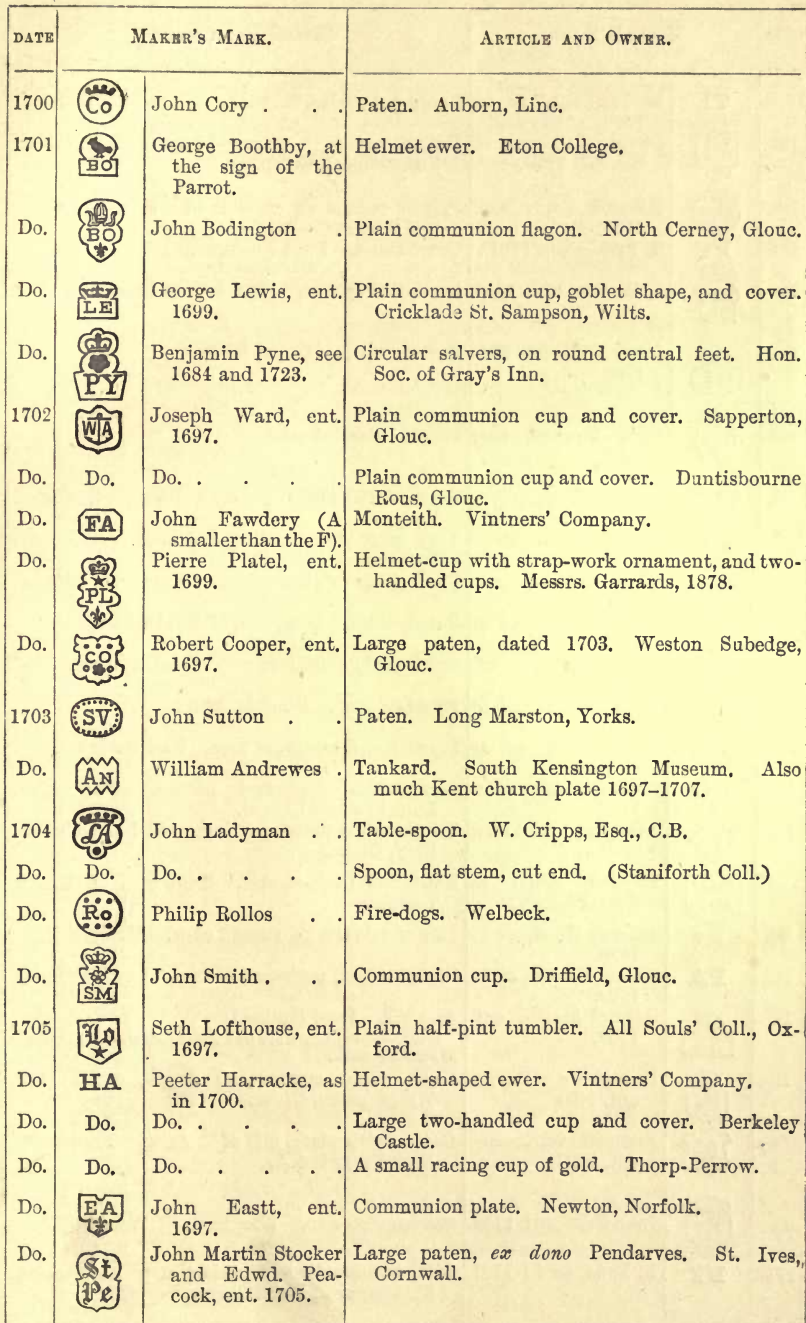 DATE MAKER'S MARK. ARTICLE AND OWNER.
1700 Co John Cory . . . Paten. Auborn, Linc.
1701 BO George Boothby, at Helmet ewer. Eton College.
the sign of the
Parrot.
Do. BO John Bodington . Plain communion flagon. North Cerney, Glouc.
Do. LE George Lewis, ent. Plain communion cup, goblet shape, and cover.
1699. Cricklade St. Sampson, Wilts.
Do. PY Benjamin Pyne, see Circular salvers, on round central feet. Hon.
1684 and 1723. Soc. of Gray's Inn.
1702 WA Joseph Ward, ent. Plain communion cup and cover. Sapperton,
1697. Glouc.
Do. Do. Do. . . . . Plain communion cup and cover. Duntisbourne
Rous, Glouc.
Do. FA John Fawdery (A Monteith. Vintners' Company.
smaller than the F).
Do. PL Pierre Platel, ent. Helmet-cup with strap-work ornament, and two-
1699. handled cups. Messrs. Garrards, 1878.
Do. CO Robert Cooper, ent. Large paten, dated 1703. Weston Subedge,
1697. Glouc.
1703 SV John Sutton . . Paten. Long Marston, Yorks.
Do. AN William Andrewes . Tankard. South Kensington Museum. Also
much Kent church plate 1697–1707.
1704 LA John Ladyman . . Table-spoon. W. Cripps, Esq., C.B.
Do. Do. Do. . . . . Spoon, flat stem, cut end. (Staniforth Coll.)
Do. Ro Philip Rollos . . Fire-dogs. Welbeck.
Do. SM John Smith . . . Communion cup. Driffield, Glouc.
1705 Lo Seth Lofthouse, ent. Plain half-pint tumbler. All Souls' Coll., Ox-
1697. ford.
Do. HA Peeter Harracke, as Helmet-shaped ewer. Vintners' Company.
in 1700.
Do. Do. Do. . . . . Large two-handled cup and cover. Berkeley
Castle.
Do. Do. Do. . . . . A small racing cup of gold. Thorp-Perrow.
Do. EA John Eastt, ent. Communion plate. Newton, Norfolk.
1697.
Do. St Pe John Martin Stocker Large paten, ex dono Pendarves. St. Ives,
and Edwd. Pea- Cornwall.
cock, ent. 1705.